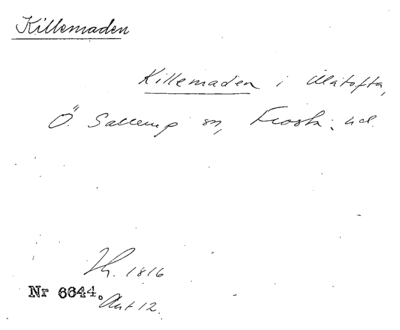 Killemaden
Killemaden i Ulatofta,
Ö. Sallerup sn, Frosta hd.
Th. 1816
Nr 6644. Akt 12.